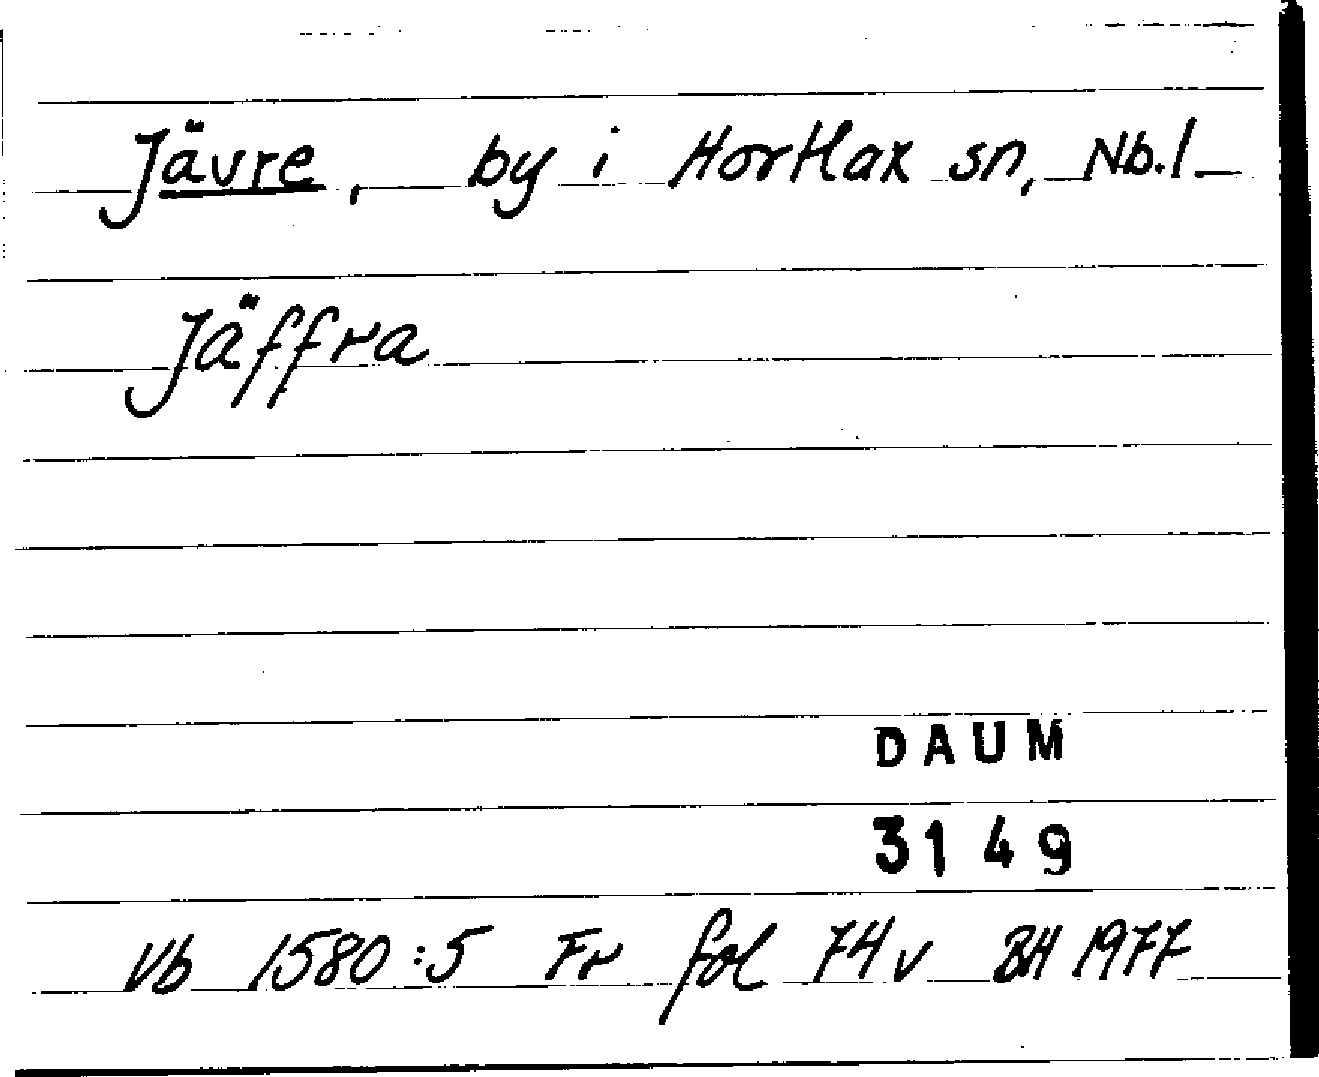 Jävre, by i Hortlax sn, Nb.l
Jäffra
DAUM
3149
Vb 1580:5 Fr fol 74 v BH 1977